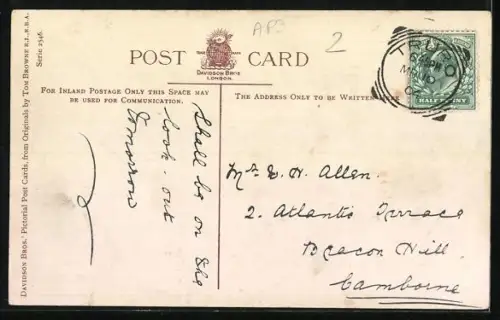 A P3
2
POST CARD
DAVIDSON BROS
LONDON.
FOR INLAND POSTAGE ONLY THIS SPACE MAY
BE USED FOR COMMUNICATION.
THE ADDRESS ONLY TO BE WRITTEN
Shall be on the
look-out
tomorrow
Mr E. H. Allen.
2. Atlantis Terrace
Beacon Hill.
Camborne
TRURO
HALFPENNY
DAVIDSON BROS.' Pictorial Post Cards, from Originals by TOM BROWNE R.I., R.B.A.
Serie 2546.